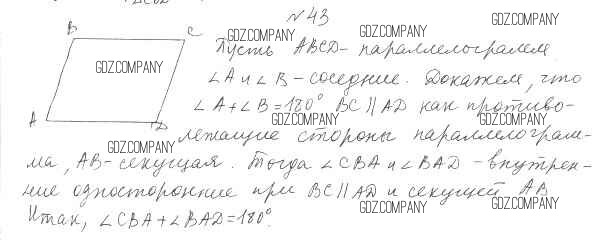 №43
B C
GDZ.COMPANY GDZ.COMPANY GDZ.COMPANY
Пусть ABCD - параллелограмм
GDZ.COMPANY
∠A и ∠B - соседние. Докажем, что
∠A + ∠B = 180° BC ∥ AD как противо-
A D
GDZ.COMPANY GDZ.COMPANY GDZ.COMPANY
лежащие стороны параллелограм-
GDZ.COMPANY
ма, AB - секущая. Тогда ∠CBA и ∠BAD - внутрен-
ние односторонние при BC ∥ AD и секущей AB
GDZ.COMPANY GDZ.COMPANY
Итак, ∠CBA + ∠BAD = 180°.